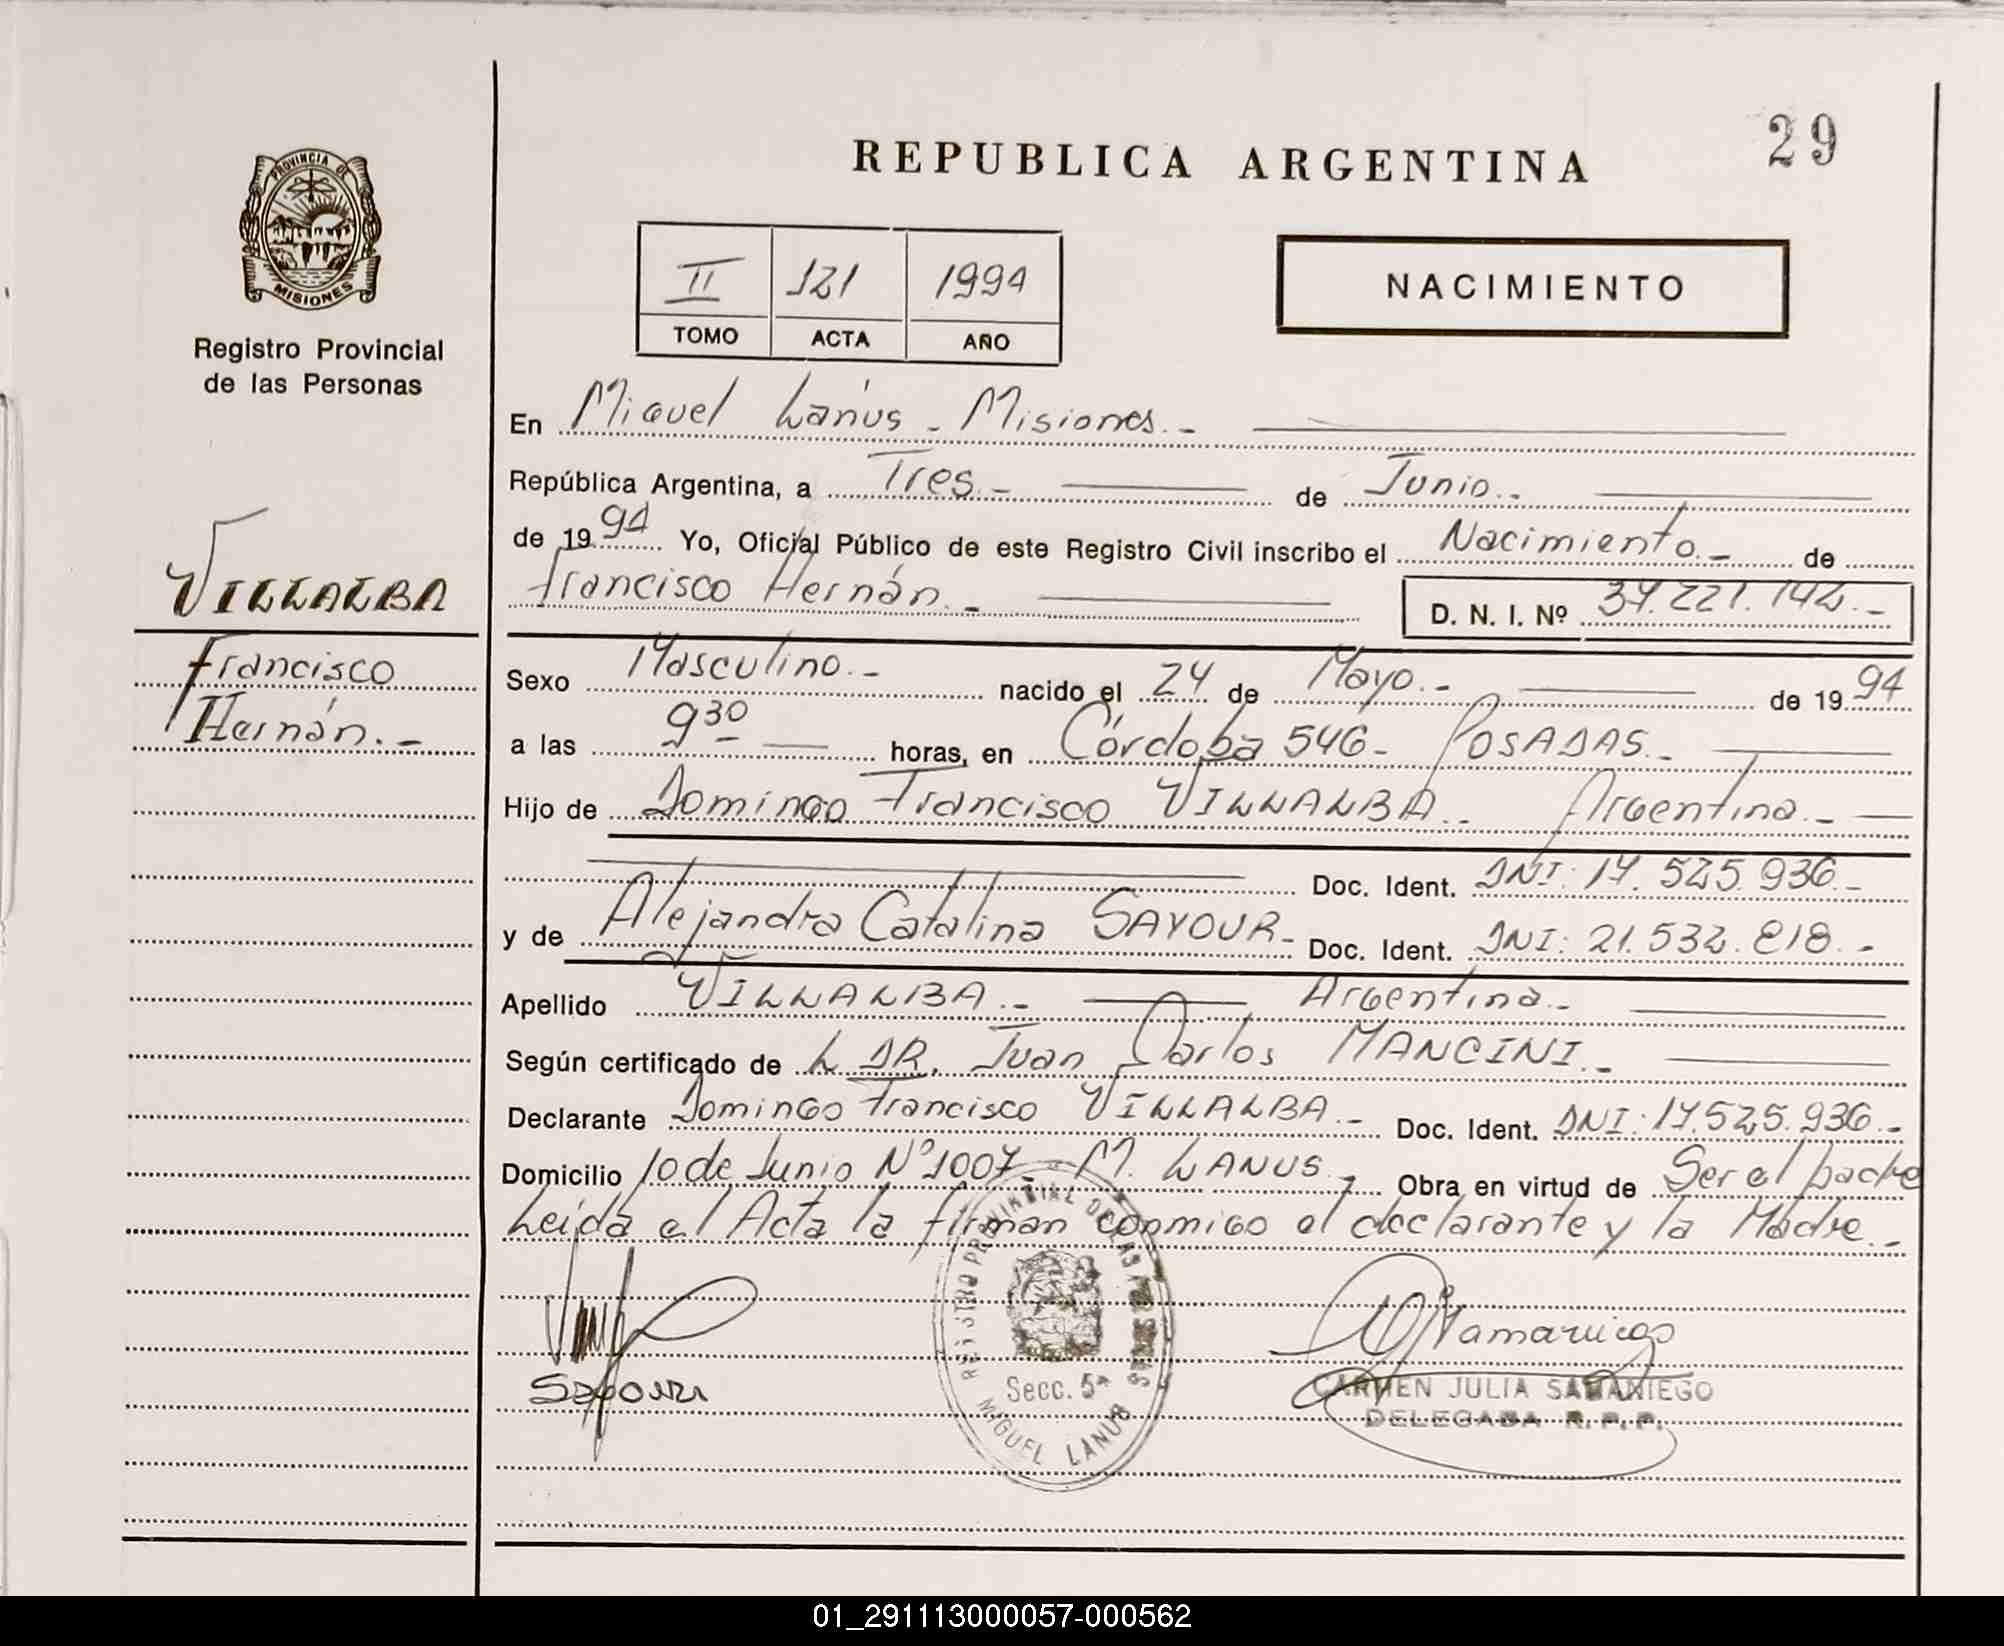 29
REPUBLICA ARGENTINA
PROVINCIA DE
MISIONES
Registro Provincial
de las Personas
II 121 1994
TOMO ACTA AÑO
NACIMIENTO
En Miguel Lanús - Misiones.-
República Argentina, a Tres.- de Junio.-
de 1994 Yo, Oficial Público de este Registro Civil inscribo el Nacimiento.- de
Francisco Hernán.- D. N. I. Nº 37.221.142.-
VILLALBA
Francisco
Hernán.-
Sexo Masculino.- nacido el 24 de Mayo.- de 1994
a las 9 30 horas, en Córdoba 546- POSADAS.-
Hijo de Domingo Francisco VILLALBA.- Argentina.-
Doc. Ident. DNI: 17.525.936.-
y de Alejandra Catalina SAYOUR- Doc. Ident. DNI: 21.532.818.-
Apellido VILLALBA.- Argentina.-
Según certificado de L DR. Juan Carlos MANCINI.-
Declarante Domingo Francisco VILLALBA.- Doc. Ident. DNI: 17.525.936.-
Domicilio 10 de Junio Nº 1007 - M. LANUS.- Obra en virtud de Ser el padre
Leída el Acta la firman conmigo el declarante y la Madre.-
REGISTRO PROVINCIAL DE LAS PERSONAS
Secc. 5ª
MIGUEL LANUS
Sayour
CARMEN JULIA SAMANIEGO
DELEGADA R. P. P.
01_291113000057-000562